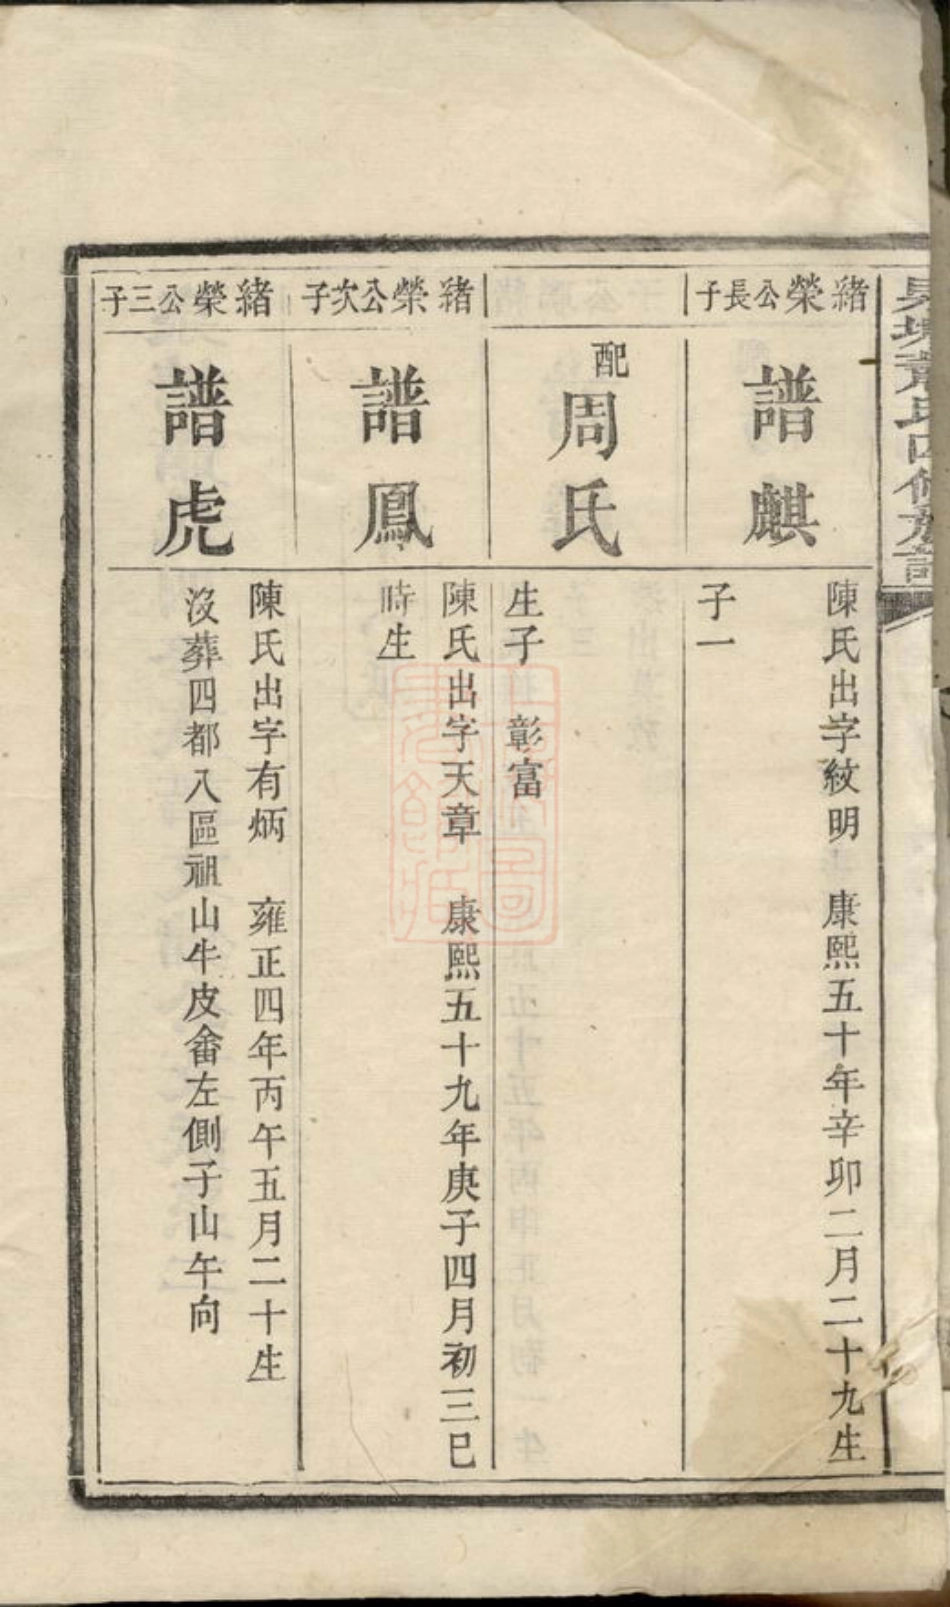 緒榮公長子
譜麒
陳氏出字紋明　康熙五十年辛卯二月二十九生
子一
配周氏
生子　彰富
緒榮公次子
譜鳳
陳氏出字天章　康熙五十九年庚子四月初三巳
時生
緒榮公三子
譜虎
陳氏出字有炳　雍正四年丙午五月二十生
沒葬四都八區祖山牛皮畬左側子山午向